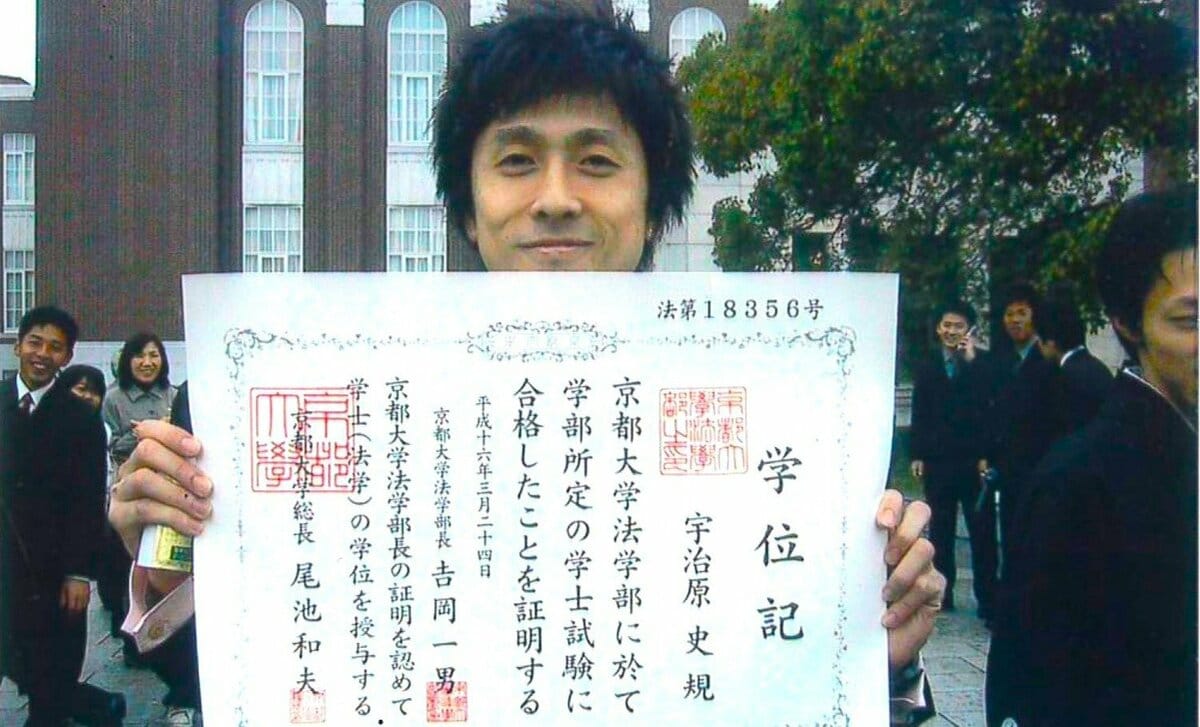 法第18356号
学位記
宇治原 史規
京都大学法学部に於て
学部所定の学士試験に
合格したことを証明する
平成十六年三月二十四日
京都大学法学部長 吉岡一男
京都大学法学部長の証明を認めて
学士(法学)の学位を授与する
京都大学総長 尾池和夫